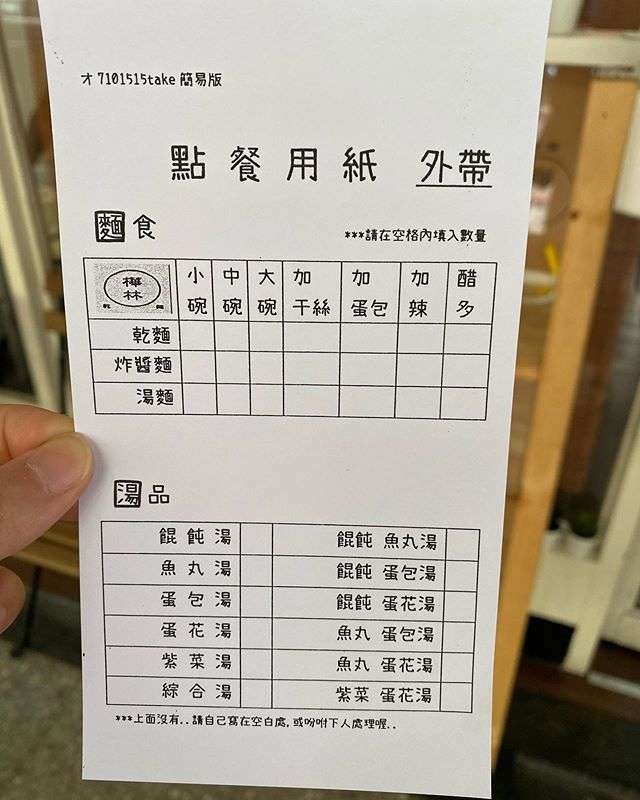 才 7101515take 簡易版
點餐用紙 外帶
麵食
***請在空格內填入數量
樺林 小碗 中碗 大碗 加干絲 加蛋包 加辣 醋多
乾麵
炸醬麵
湯麵
湯品
餛飩湯 餛飩 魚丸湯
魚丸湯 餛飩 蛋包湯
蛋包湯 餛飩 蛋花湯
蛋花湯 魚丸 蛋包湯
紫菜湯 魚丸 蛋花湯
綜合湯 紫菜 蛋花湯
***上面沒有..請自己寫在空白處,或吩咐下人處理喔..